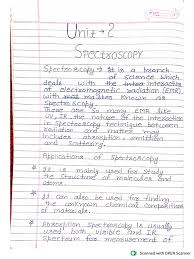 Unit-2
SPECTROSCOPY
Spectroscopy → It is a branch
of science which
deals with the interaction
of electromagnetic radiation (EMR)
with matter known as
Spectroscopy.
There are so many EMR like
UV, IR, the nature of the interaction
in Spectroscopy technique between
radiation and matter may
includes absorption, emission
and scattering.
Applications of Spectroscopy
It is mainly used for study
the structure of molecules and
atoms.
It can also be used for finding
the unknown chemical composition
of materials.
Absorption Spectroscopy is usually
used both visible and IR
Spectrum for measurement of
Scanned with OKEN Scanner